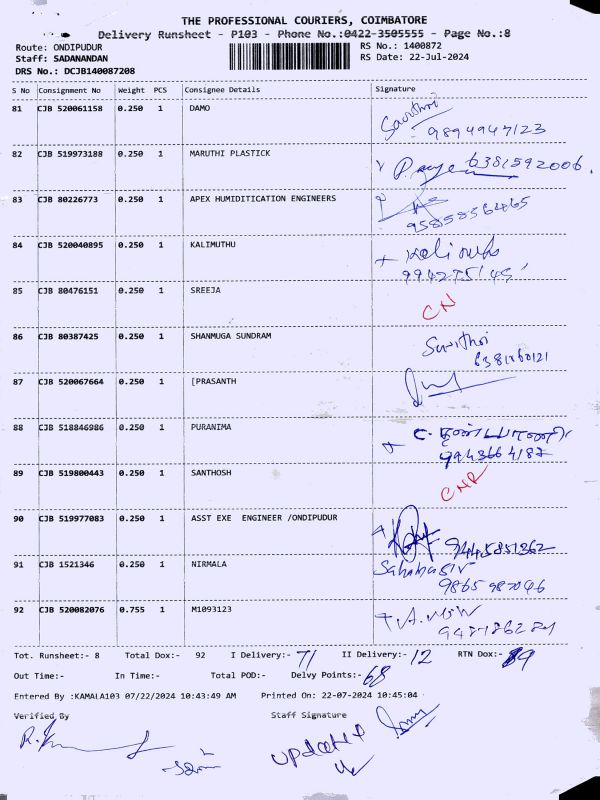 THE PROFESSIONAL COURIERS, COIMBATORE
Delivery Runsheet - P103 - Phone No.:0422-3505555 - Page No.:8
Route: ONDIPUDUR
RS No.: 1400872
Staff: SADANANDAN
RS Date: 22-Jul-2024
DRS No.: DCJB140087208
S No Consignment No Weight PCS Consignee Details Signature
81 CJB 520061158 0.250 1 DAMO Savithri
9894947123
82 CJB 519973188 0.250 1 MARUTHI PLASTICK 6381592006.
83 CJB 80226773 0.250 1 APEX HUMIDITICATION ENGINEERS
84 CJB 520040895 0.250 1 KALIMUTHU
85 CJB 80476151 0.250 1 SREEJA CN
86 CJB 80387425 0.250 1 SHANMUGA SUNDRAM Savithri
87 CJB 520067664 0.250 1 [PRASANTH
88 CJB 518846986 0.250 1 PURANIMA
9443664187
89 CJB 519800443 0.250 1 SANTHOSH CNR
90 CJB 519977083 0.250 1 ASST EXE ENGINEER /ONDIPUDUR
91 CJB 1521346 0.250 1 NIRMALA
92 CJB 520082076 0.755 1 M1093123
Tot. Runsheet:- 8 Total Dox:- 92 I Delivery:- 71 II Delivery:- 12 RTN Dox:-
Out Time:- In Time:- Total POD:- Delvy Points:- 68
Entered By :KAMALA103 07/22/2024 10:43:49 AM Printed On: 22-07-2024 10:45:04
Verified By Staff Signature
updated